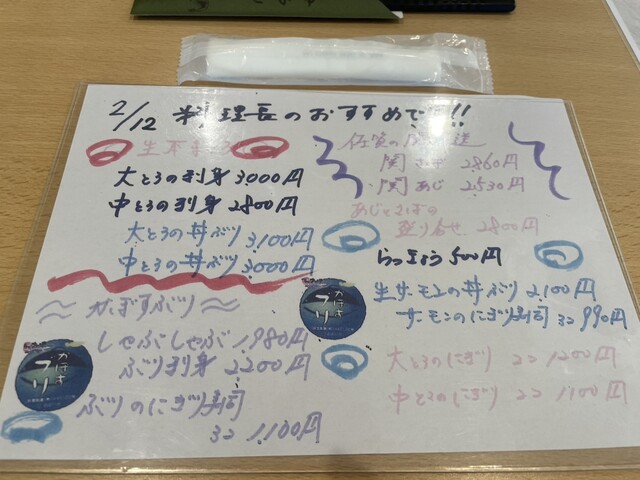 2/12 料理長のおすすめです!!
生本まぐろ
大とろの刺身 3,000円
中とろの刺身 2800円
大とろの丼ぶり 3,100円
中とろの丼ぶり 3,000円
かぼすぶり
しゃぶしゃぶ 1,980円
ぶり刺身 2,200円
ぶりのにぎり寿司
3コ 1,100円
かぼす
ブリ
関さば 2,860円
関あじ 2,530円
あじとさばの
盛り合せ 2800円
らっきょう 500円
生サーモンの丼ぶり 2,100円
サーモンのにぎり寿司 3コ 990円
大とろのにぎり 2コ 1,200円
中とろのにぎり 2コ 1,100円
かぼす
ブリ